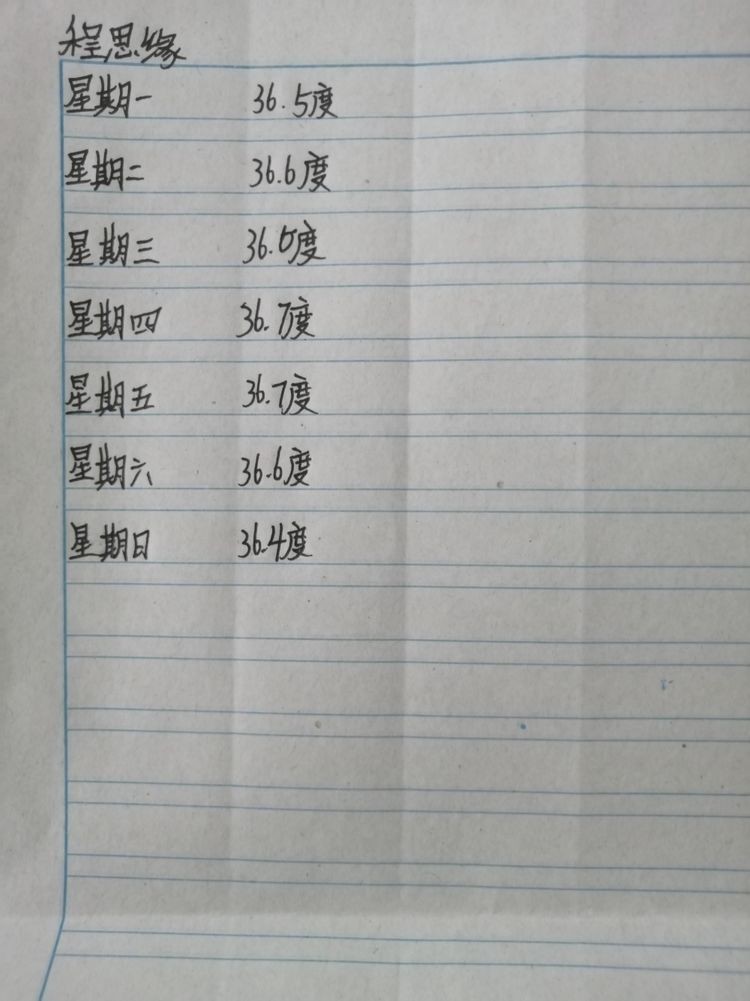 程思缘
星期一 36.5度
星期二 36.6度
星期三 度
星期四 36.7度
星期五 36.7度
星期六 36.6度
星期日 36.4度